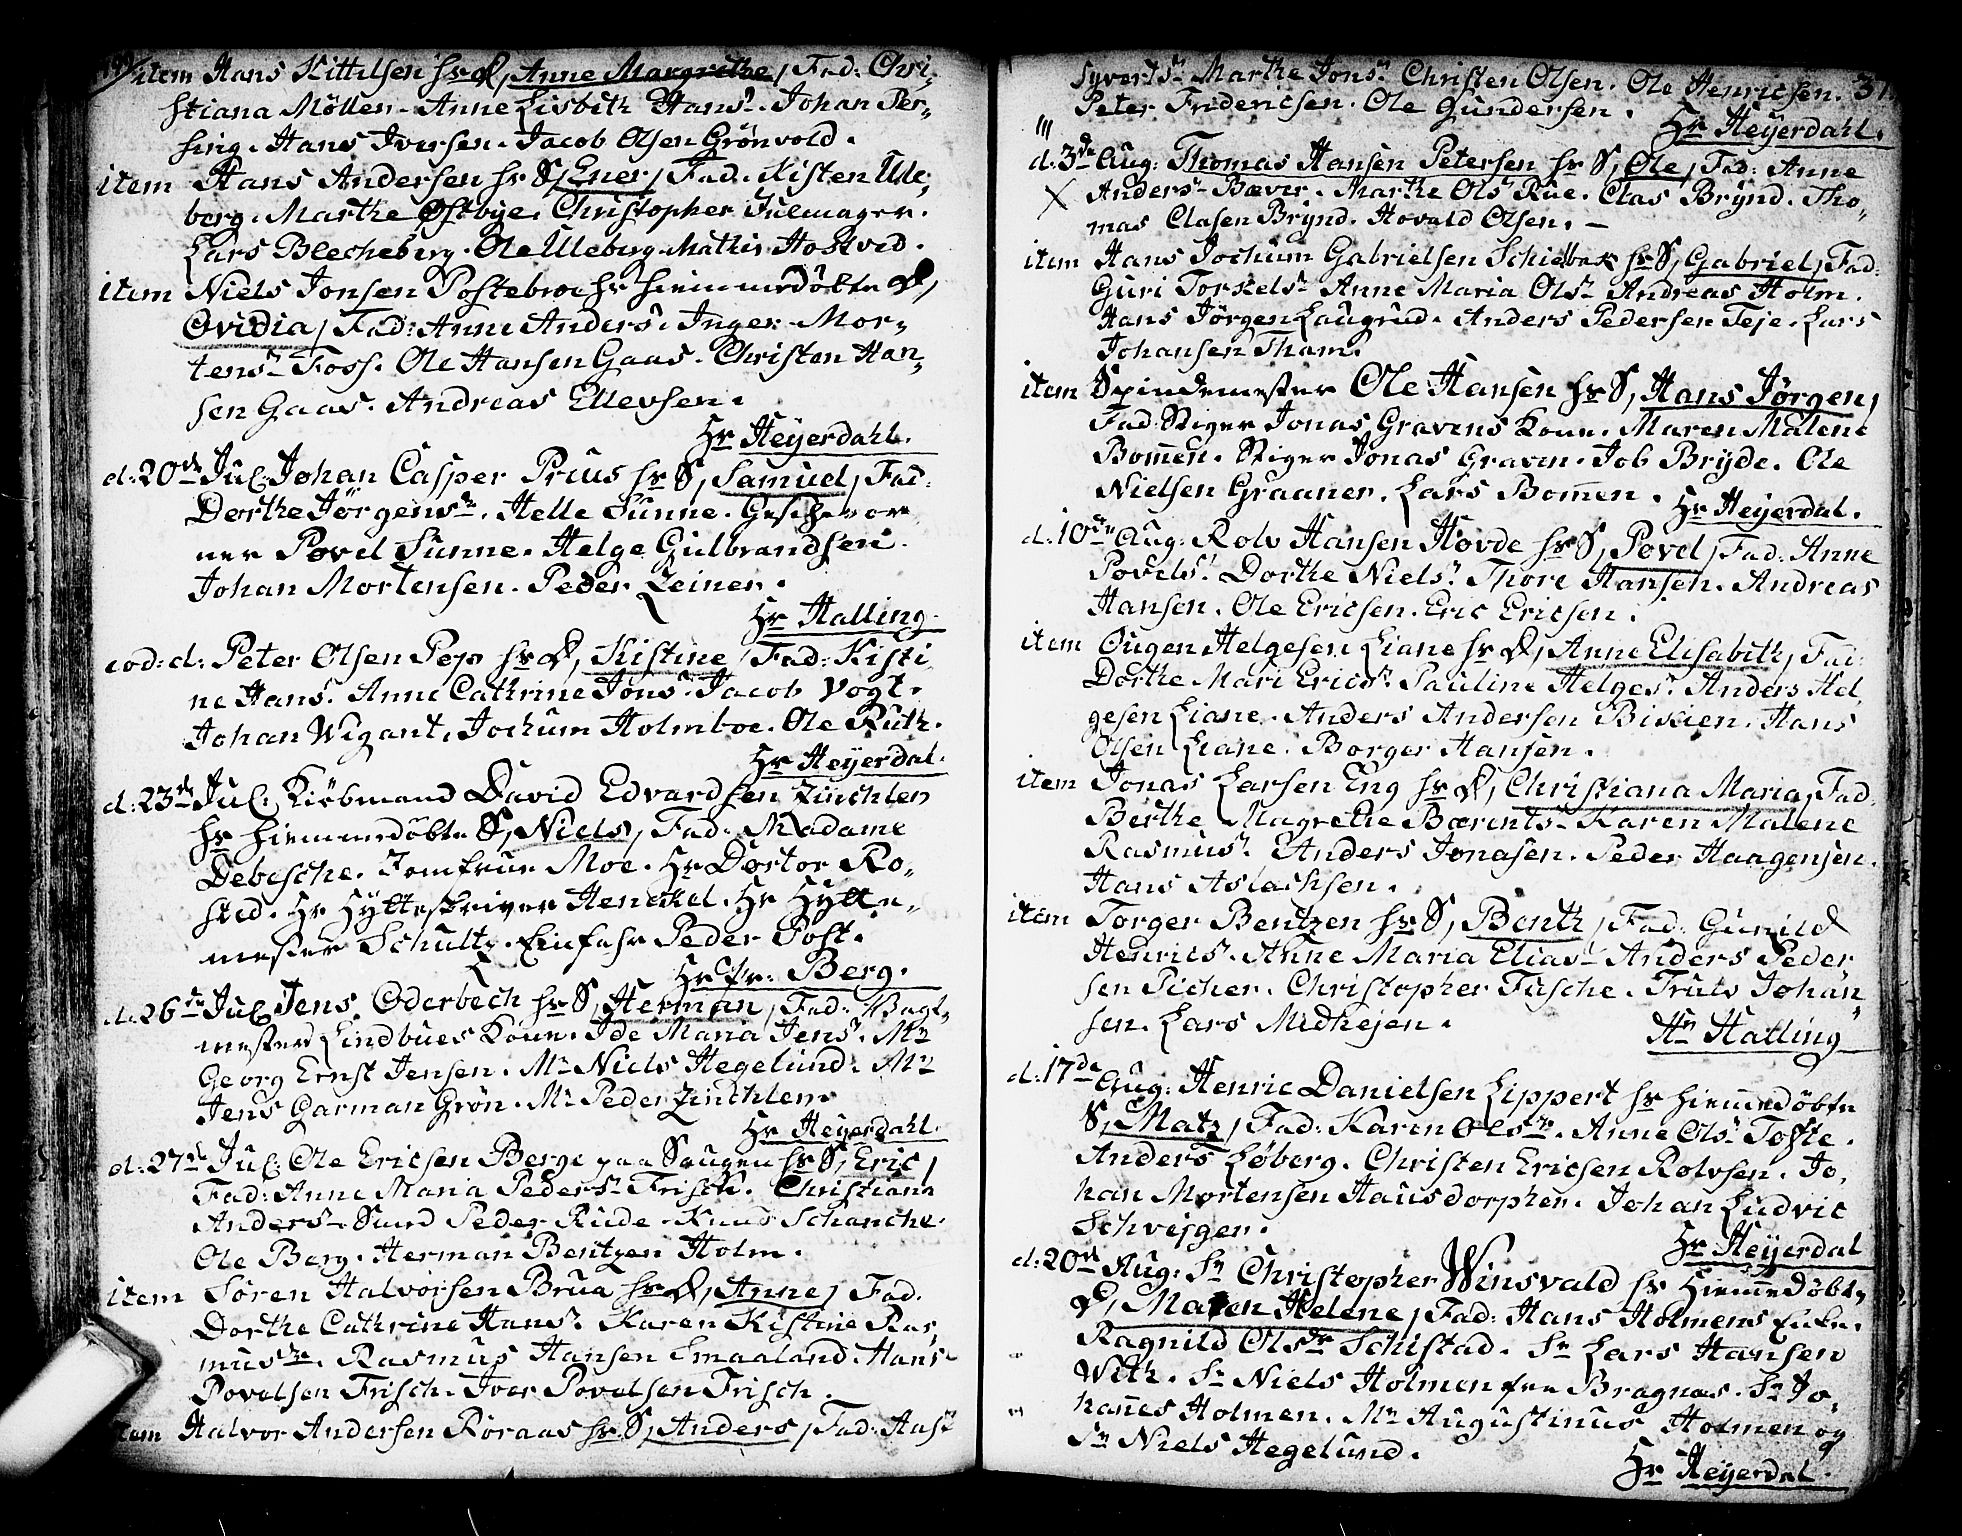 item Hans Kittilsen hr D, Anne Margrethe, Fad: Chri,
stiana Möllen. Anne Lisbith Hans. Johan Per,
sing. Hans Iversen. Jacob Olsen Grönvold.
item Hans Andersen hr S, Ener, Fad. Kisten Ule,
berg. Marthe Østbye. Christopher Julemager.
Lars Blecheberg. Ole Uleberg. Mathis Hostved.
item Niels Jonsen Postebroe hr hiemmedöbte D,
Ovidia, Fad: Anne Anders. Inger Mor,
tens Foss. Ole Hansen Gaas. Christen Han,
sen Gaas. Andreas Ellevsen.
Hr Heyerdahl.
d: 20de Jul: Johan Casper Prius hr S, Samuel, Fad:
Dorthe Jörgens. Helle Sunne. Geschwor
ner Povel Sunne. Helge Gulbrandsen.
Johan Mortensen. Peder Zeiner.
Hr Halling.
eod: d: Peter Olsen Pejs hr D, Kistine, Fad: Kisti
ne Hans. Anne Cathrine Jons. Jacob Vogt.
Johan Wigant. Jochum Holmboe. Ole Ruth.
Hr Heyerdal.
d: 23de Jul: Kiöbmand David Edvardsen Zinchlen
hr hiemmedöbte S, Niels, Fad: Madame
Debesche. Jomfrue Moe. Hr Doctor Ro,
sted. Hr Hytteskriver Henckel. Hr Hytte,
mester Schultz. Einfahr Peder Post.
Hr Cfr: Berg.
d: 26de Jul Jens Oderbech hr S, Herman, Fad: Vagt,
mester Lindbues Kone. Ide Maria Jens. Mr
Georg Ernst Jensen. Mr Niels Hegelund. Mr
Jens Garman Grön. Mr Peder Zinchlen.
Hr Heyerdahl.
d: 27de Jul: Ole Ericsen Berge paa Saugen hr S, Eric,
Fad: Anne Maria Peders. Frisch. Christiana
Anders. Sand Peder Rude. Knud Schanche.
Ole Berg. Herman Bentzen Holm.
item Sören Halvorsen Brua hr D, Anne, Fad.
Dorthe Cathrine Hans. Karen Kistine Ras,
mus. Rasmus Hansen Smaaland. Hans
Povelsen Frisch. Iver Povelsen Frisch.
item Halvor Andersen Röraas hr S, Anders, Fad: Aase
Syverts. Marthe Jons. Christen Olsen. Ole Henricsen.
Peter Fridericsen. Ole Gundersen.
Hr Heyerdahl.
d: 3de Aug: Thomas Hansen Petersen hr S, Ole, Fad: Anne
Anders. Bæver. Marthe Ols Rue. Clas Brynd. Tho,
mas Clasen Brynd. Hovald Olsen.
item Hans Jochum Gabrielsen Schiebek hr S, Gabriel, Fad:
Guri Torkels. Anne Maria Ols. Andreas Holm.
Hans Jörgen Laugrud. Anders Pedersen Teje. Lars
Johansen Tham.
item Spindemester Ole Hansen hr S, Hans Jörgen,
Fad: Stiger Jonas Gravens Kone. Maren Malene
Bommen. Stiger Jonas Graven. Job Bryde. Ole
Nielsen Graaner. Lars Bommen. Hr Heyerdal.
d. 10de Aug: Rolv Hansen Hovde hr S, Povel, Fad: Anne
Povels. Dorthe Niels. Thore Hansen. Andreas
Hansen. Ole Ericsen. Eric Ericsen.
item Ougen Helgesen Liane hr D, Anne Elisabith, Fad:
Dorthe Mari Erics. Pauline Helges. Anders Hel,
gesen Liane. Anders Andersen Biskien. Hans
Olsen Liane. Borger Hansen.
item Jonas Larsen Eng hr D, Christiana Maria, Fad:
Berthe Magrethe Bærents. Karen Malene
Rasmus. Anders Jonasen. Peder Haagensen.
Hans Aslachsen.
item Torger Bentzen hr S, Bentz, Fad: Gunild
Henrics. Anne Maria Elias. Anders Peder
sen Picher. Christopher Fusche. Truls Johan
sen. Lars Midhejen. Hr Halling
d: 17de Aug: Henric Danielsen Lippert hr hiemmedöbte
S, Matz, Fad: Karen Ols. Anne Ols Tofte.
Anders Löberg. Christen Ericsen Rolvsen. Jo,
han Mortensen Hausdorpher. Johan Ludvic
Schvejger.
Hr Heyerdal
d: 20de Aug: Sr Christopher Winsvald hr hiemmedöbte
D, Maren Helene, Fad: Hans Holmens Enke.
Ragnild Ols Schistad. Sr Lars Hansen
With. Sr Niels Holmen fra Bragnæs. Sr Jo,
hannes Holmen. Mr Augustinus Holmen og
Sr Niels Hegelund.
Hr Heyerdal.